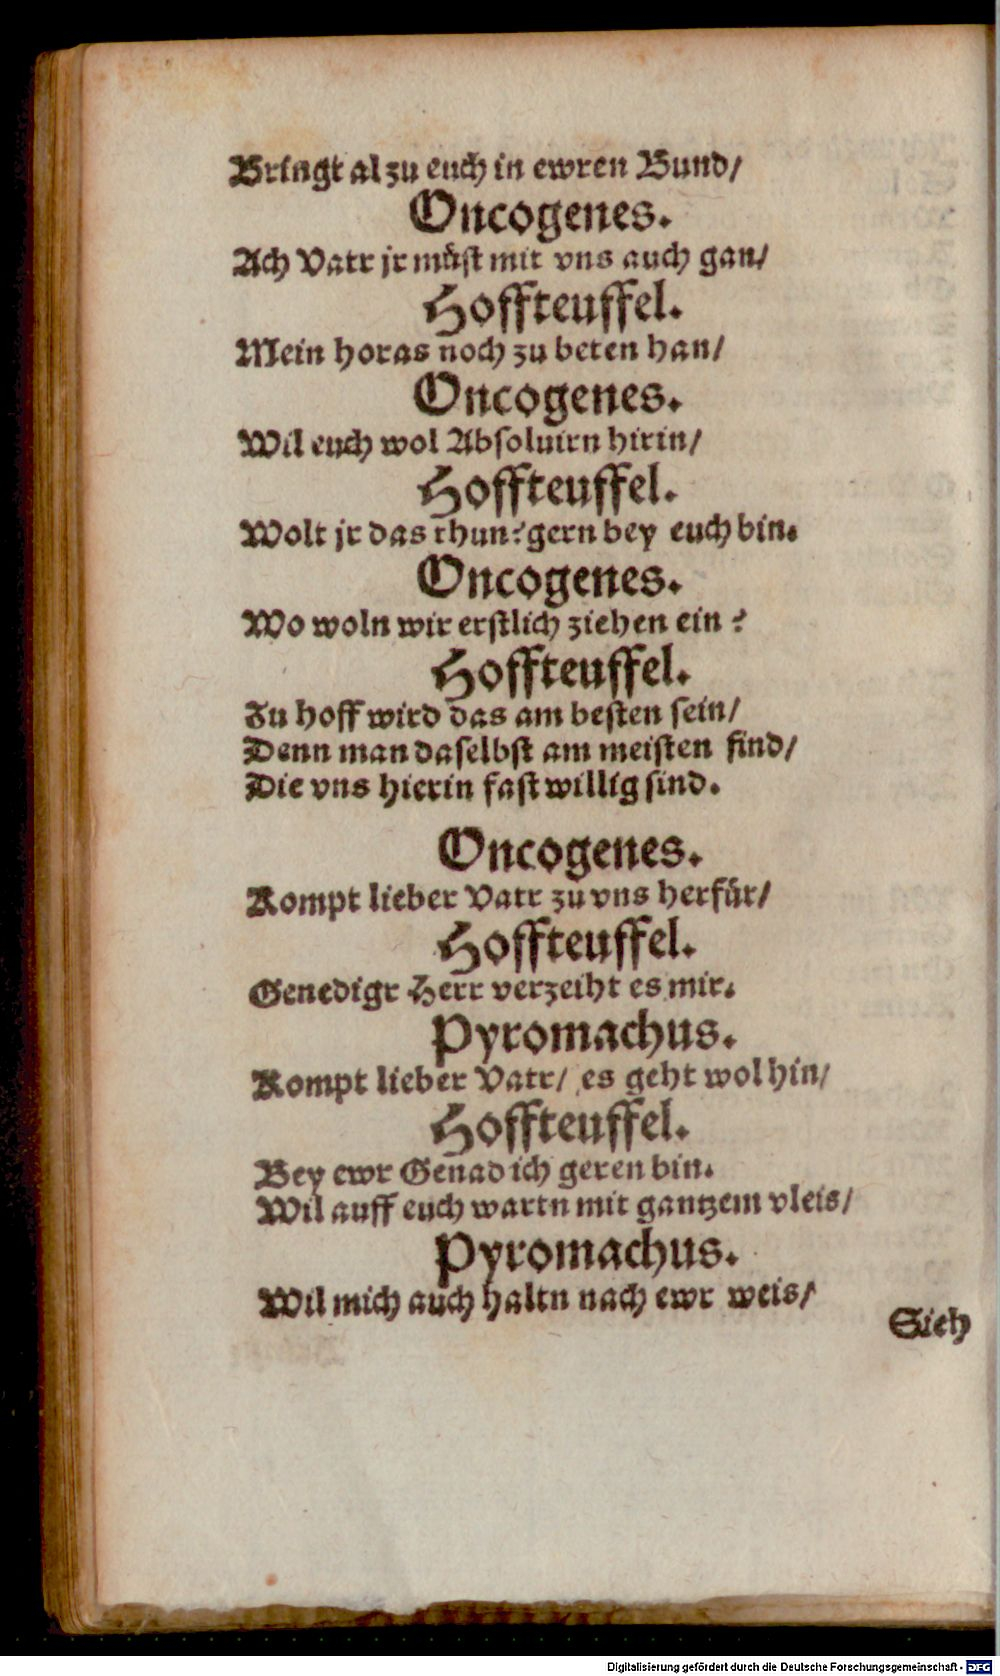 Bringt al zu euch in ewren Bund/
Oncogenes.
Ach Vatr jr müst mit vns auch gan/
Hoffteuffel.
Mein horas noch zu beten han/
Oncogenes.
Wil euch wol Absoluirn hirin/
Hoffteuffel.
Wolt jr das thun? gern bey euch bin.
Oncogenes.
Wo woln wir erstlich ziehen ein?
Hoffteuffel.
Zu hoff wird das am besten sein/
Denn man daselbst am meisten find/
Die vns hierin fast willig sind.
Oncogenes.
Kompt lieber Vatr zu vns herfür/
Hoffteuffel.
Genedigr Herr verzeiht es mir.
Pyromachus.
Kompt lieber Vatr/ es geht wol hin/
Hoffteuffel.
Bey ewr Genad ich geren bin.
Wil auff euch wartn mit gantzem vleis/
Pyromachus.
Wil mich auch haltn nach ewr weis/
Sieh
Digitalisierung gefördert durch die Deutsche Forschungsgemeinschaft - DFG